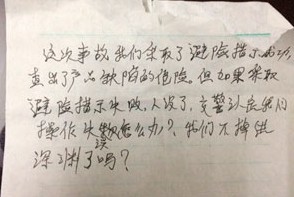 这次事故,我们采取了避险措示成功,
查出了产品缺陷的危险。但如果采取
避险措示失败,人没了,交警认底我们
操作失误怎么办?我们不掉进
深渊了吗?